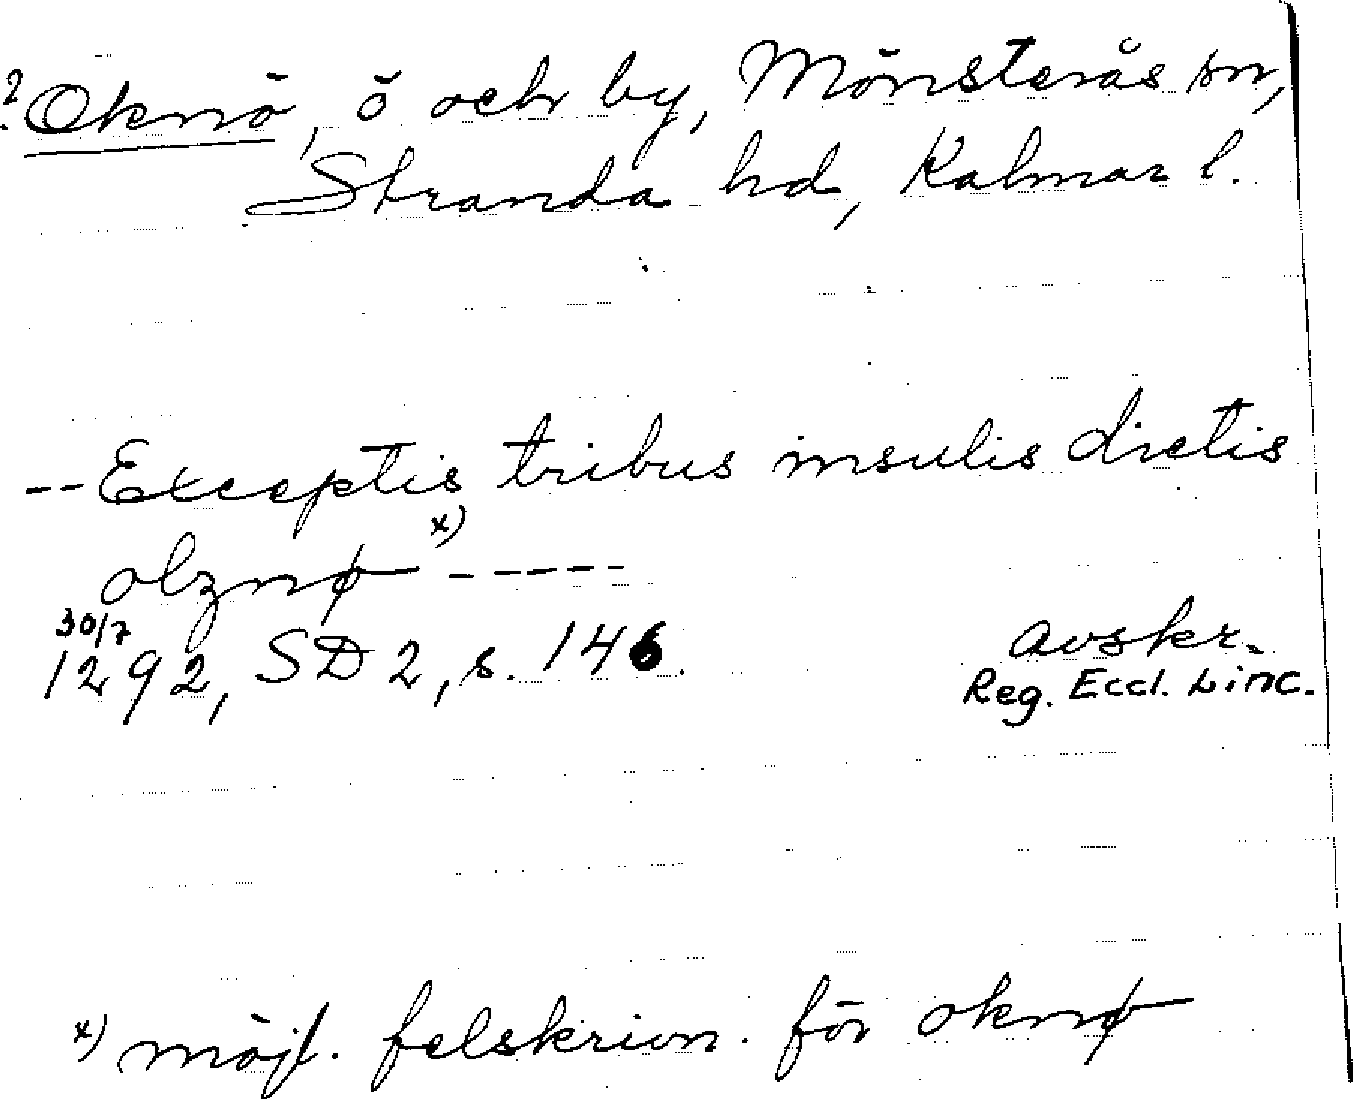 ? Oknö, ö och by, Mönsterås sn,
Stranda hd, Kalmar l.
-- Exceptis tribus insulis dictis
olznø x) -----
30/7
1292, SD 2, s. 146.
avskr.
Reg. Eccl. Linc.
x) möjl. felskrivn. för oknø